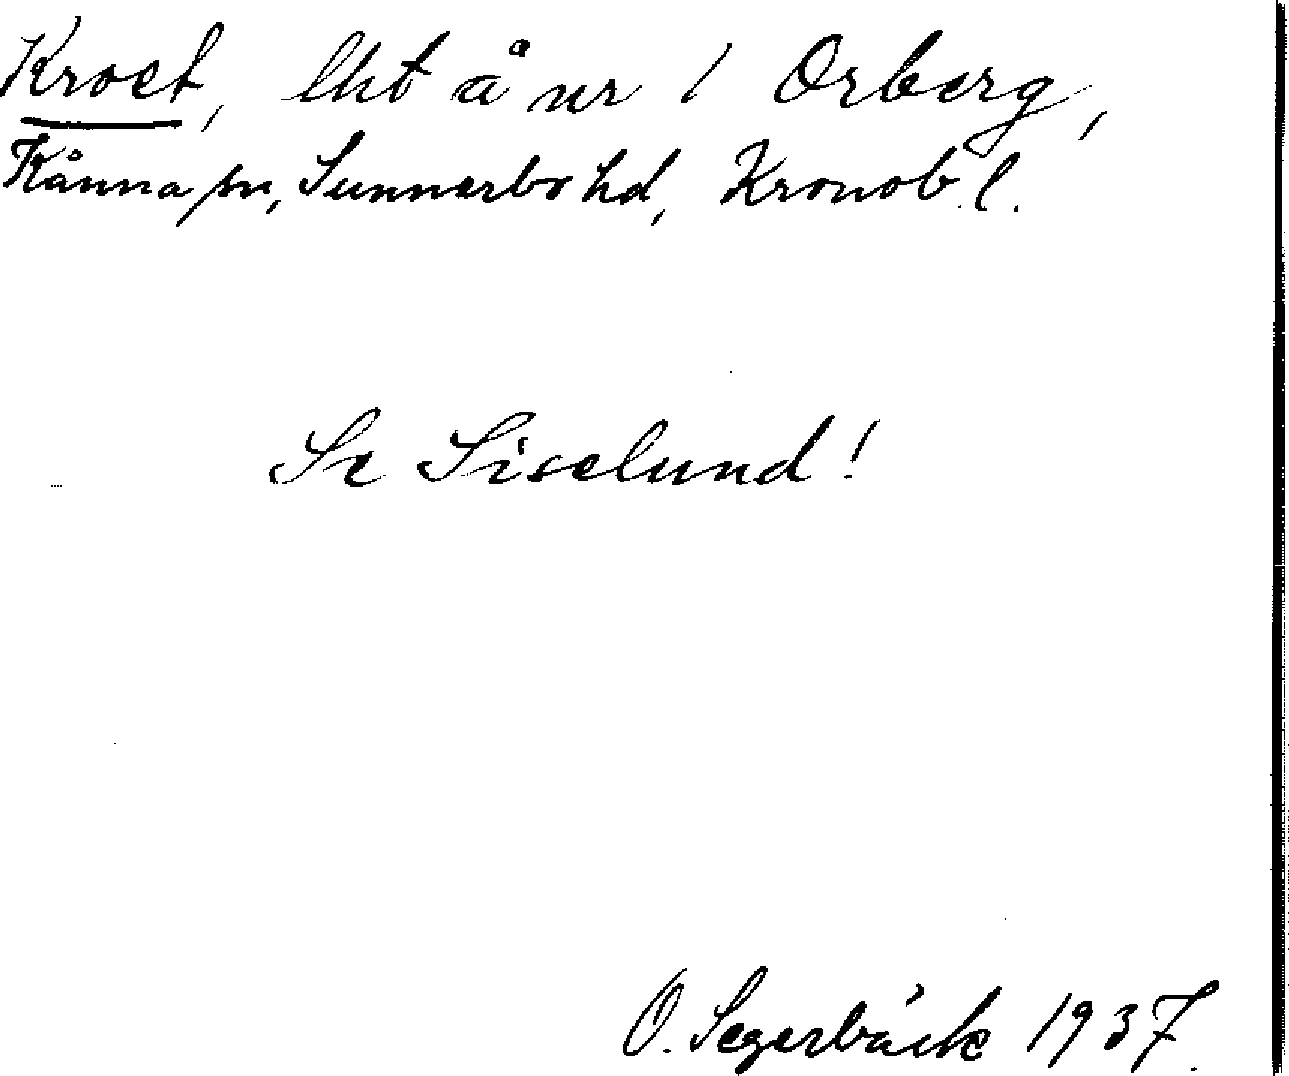 Kroet, lht å nr 1 Orberg,
Kånna sn, Sunnerbo hd, Kronob. l.
Se Siselund!
O. Segerbäck 1937.